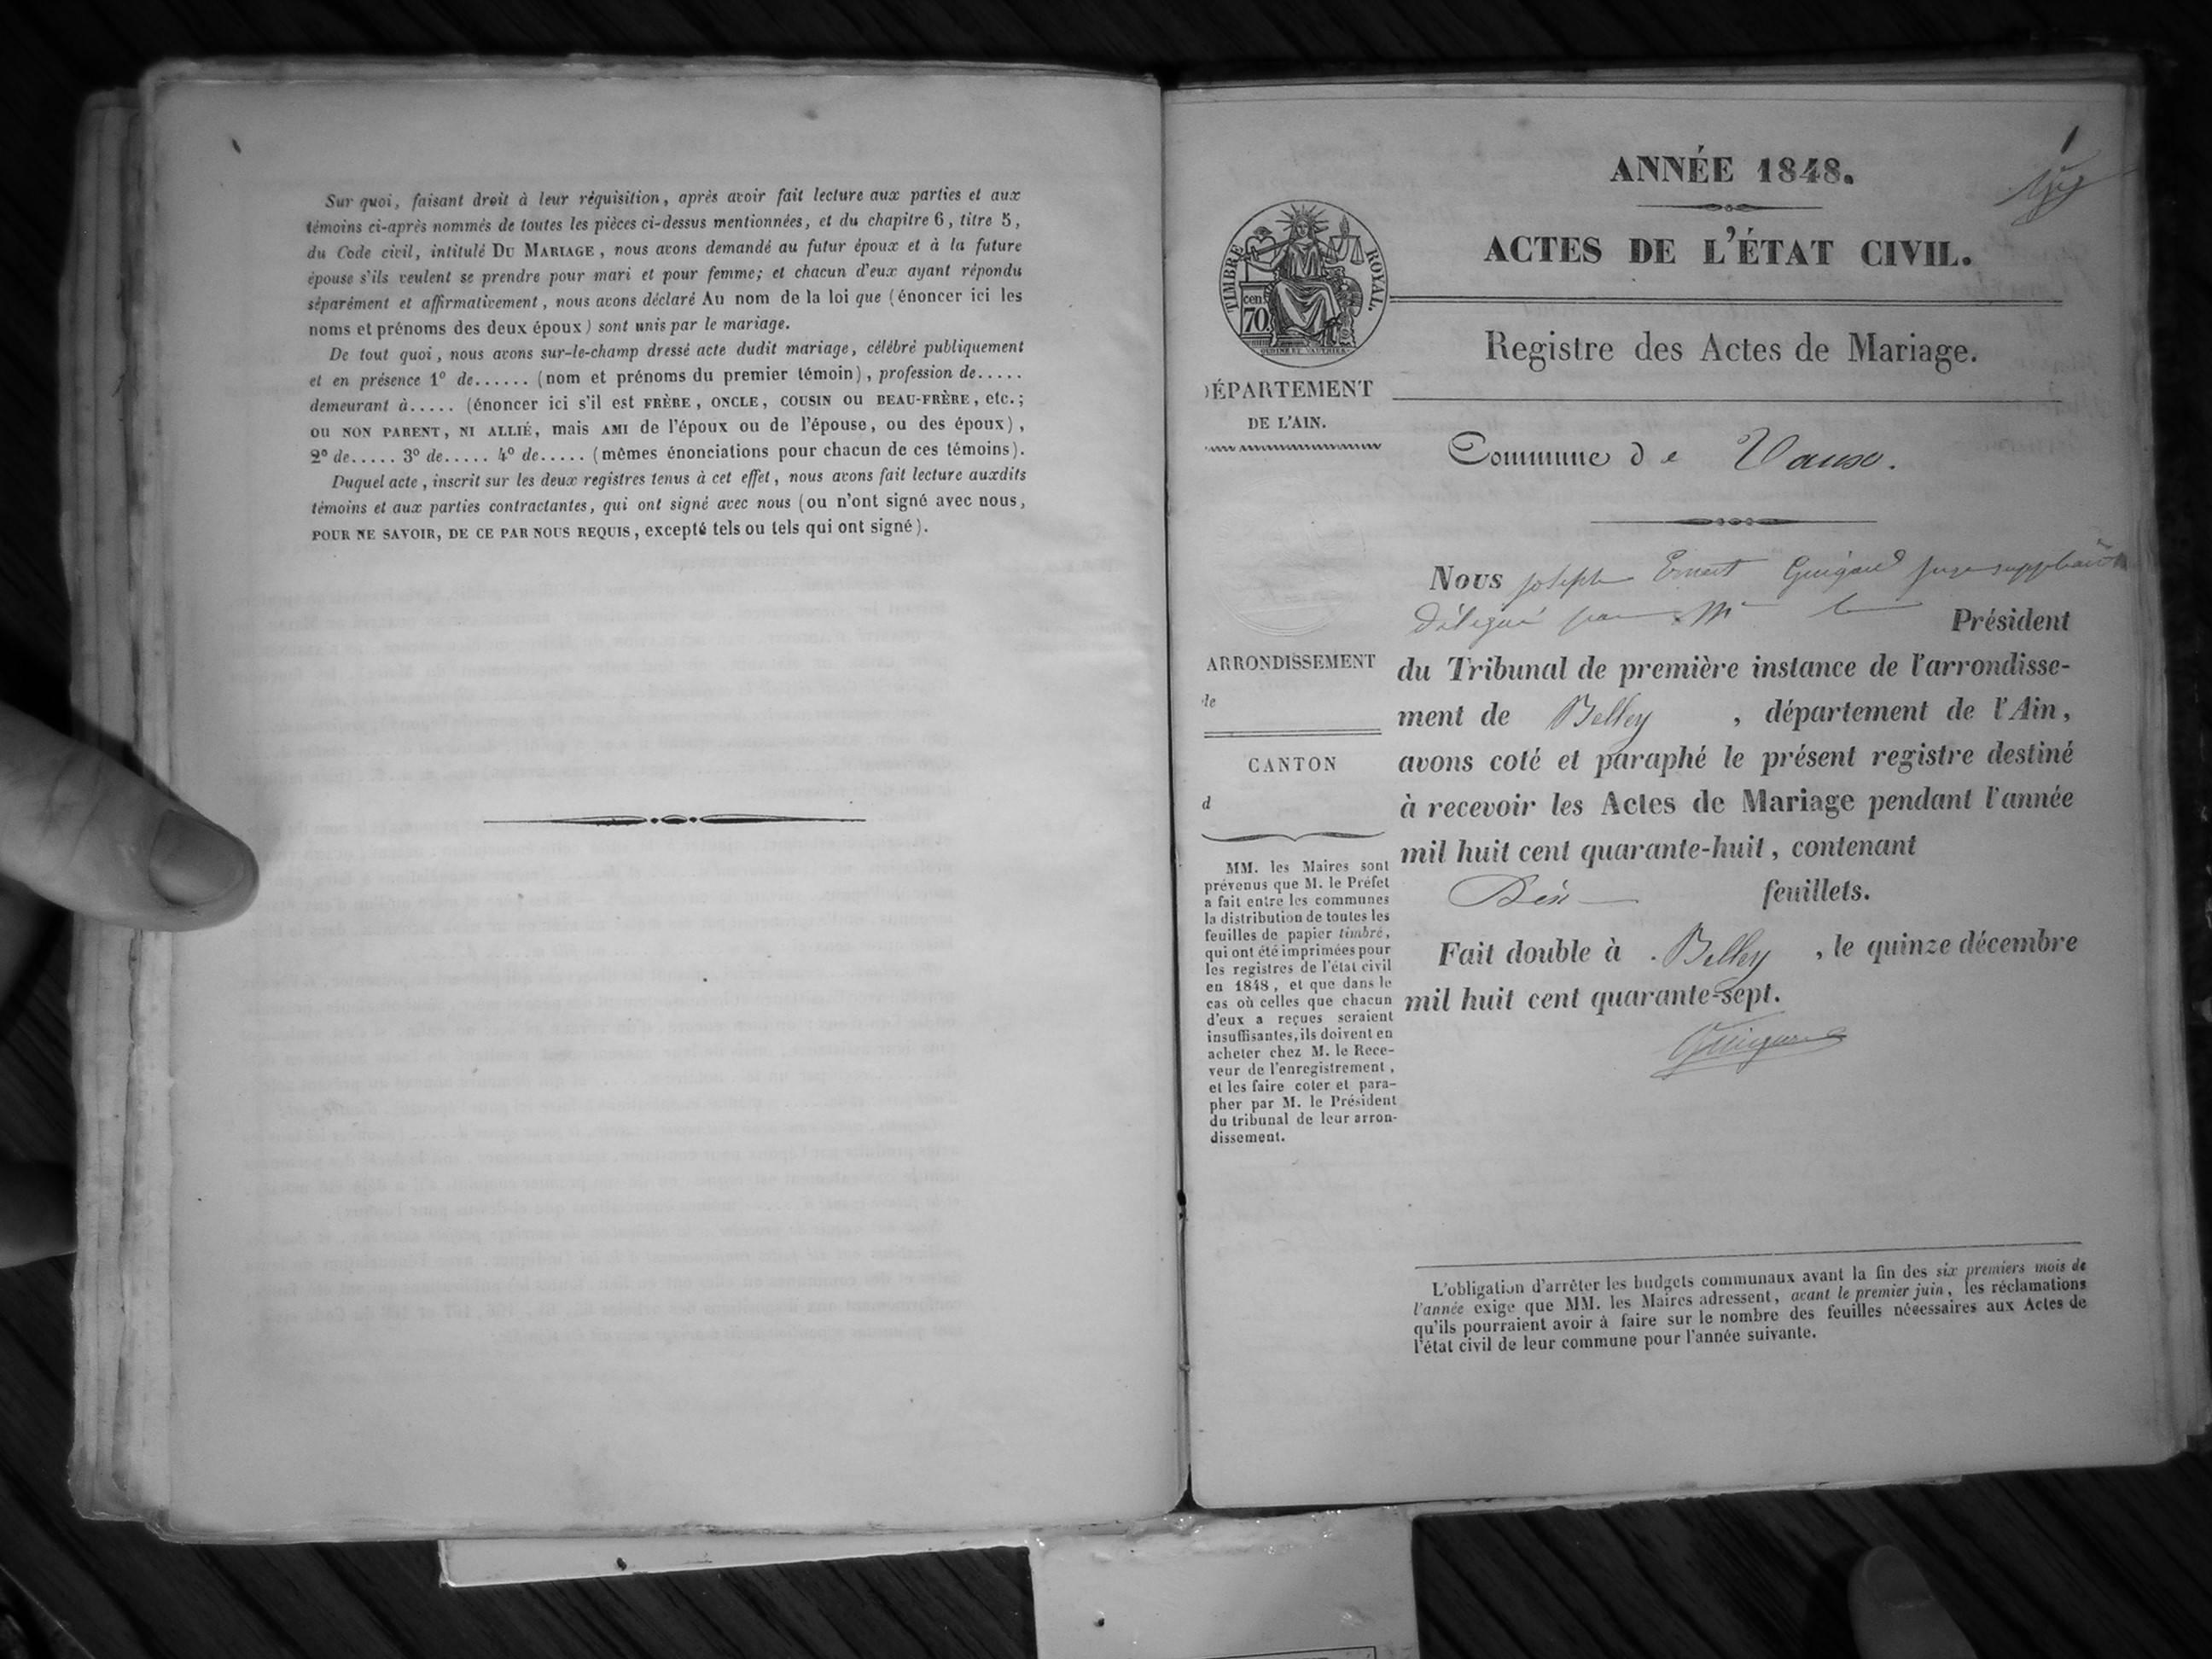 Sur quoi, faisant droit à leur réquisition, après avoir fait lecture aux parties et aux
témoins ci-après nommés de toutes les pièces ci-dessus mentionnées, et du chapitre 6, titre 5,
du Code civil, intitulé DU MARIAGE, nous avons demandé au futur époux et à la future
épouse s'ils veulent se prendre pour mari et pour femme; et chacun d'eux ayant répondu
séparément et affirmativement, nous avons déclaré Au nom de la loi que (énoncer ici les
noms et prénoms des deux époux) sont unis par le mariage.
De tout quoi, nous avons sur-le-champ dressé acte dudit mariage, célébré publiquement
et en présence 1º de...... (nom et prénoms du premier témoin), profession de.....
demeurant à..... (énoncer ici s'il est FRÈRE, ONCLE, COUSIN ou BEAU-FRÈRE, etc.;
ou NON PARENT, NI ALLIÉ, mais AMI de l'époux ou de l'épouse, ou des époux),
2º de..... 3º de..... 4º de..... (mêmes énonciations pour chacun de ces témoins).
Duquel acte, inscrit sur les deux registres tenus à cet effet, nous avons fait lecture auxdits
témoins et aux parties contractantes, qui ont signé avec nous (ou n'ont signé avec nous,
POUR NE SAVOIR, DE CE PAR NOUS REQUIS, excepté tels ou tels qui ont signé).
1
ANNÉE 1848.
ACTES DE L'ÉTAT CIVIL.
TIMBRE ROYAL.
cen.
70
Registre des Actes de Mariage.
DÉPARTEMENT
DE L'AIN.
Commune de
Nous Joseph Ernest Guigard juge suppléant
délégué par Mr le Président
du Tribunal de première instance de l'arrondisse-
ment de Belley, département de l'Ain,
avons coté et paraphé le présent registre destiné
à recevoir les Actes de Mariage pendant l'année
mil huit cent quarante-huit, contenant
feuillets.
Fait double à Belley, le quinze décembre
mil huit cent quarante-sept.
ARRONDISSEMENT
de
CANTON
d
MM. les Maires sont
prévenus que M. le Préfet
a fait entre les communes
la distribution de toutes les
feuilles de papier timbré,
qui ont été imprimées pour
les registres de l'état civil
en 1848, et que dans le
cas où celles que chacun
d'eux a reçues seraient
insuffisantes, ils doivent en
acheter chez M. le Rece-
veur de l'enregistrement,
et les faire coter et para-
pher par M. le Président
du tribunal de leur arron-
dissement.
L'obligation d'arrêter les budgets communaux avant la fin des six premiers mois de
l'année exige que MM. les Maires adressent, avant le premier juin, les réclamations
qu'ils pourraient avoir à faire sur le nombre des feuilles nécessaires aux Actes de
l'état civil de leur commune pour l'année suivante.